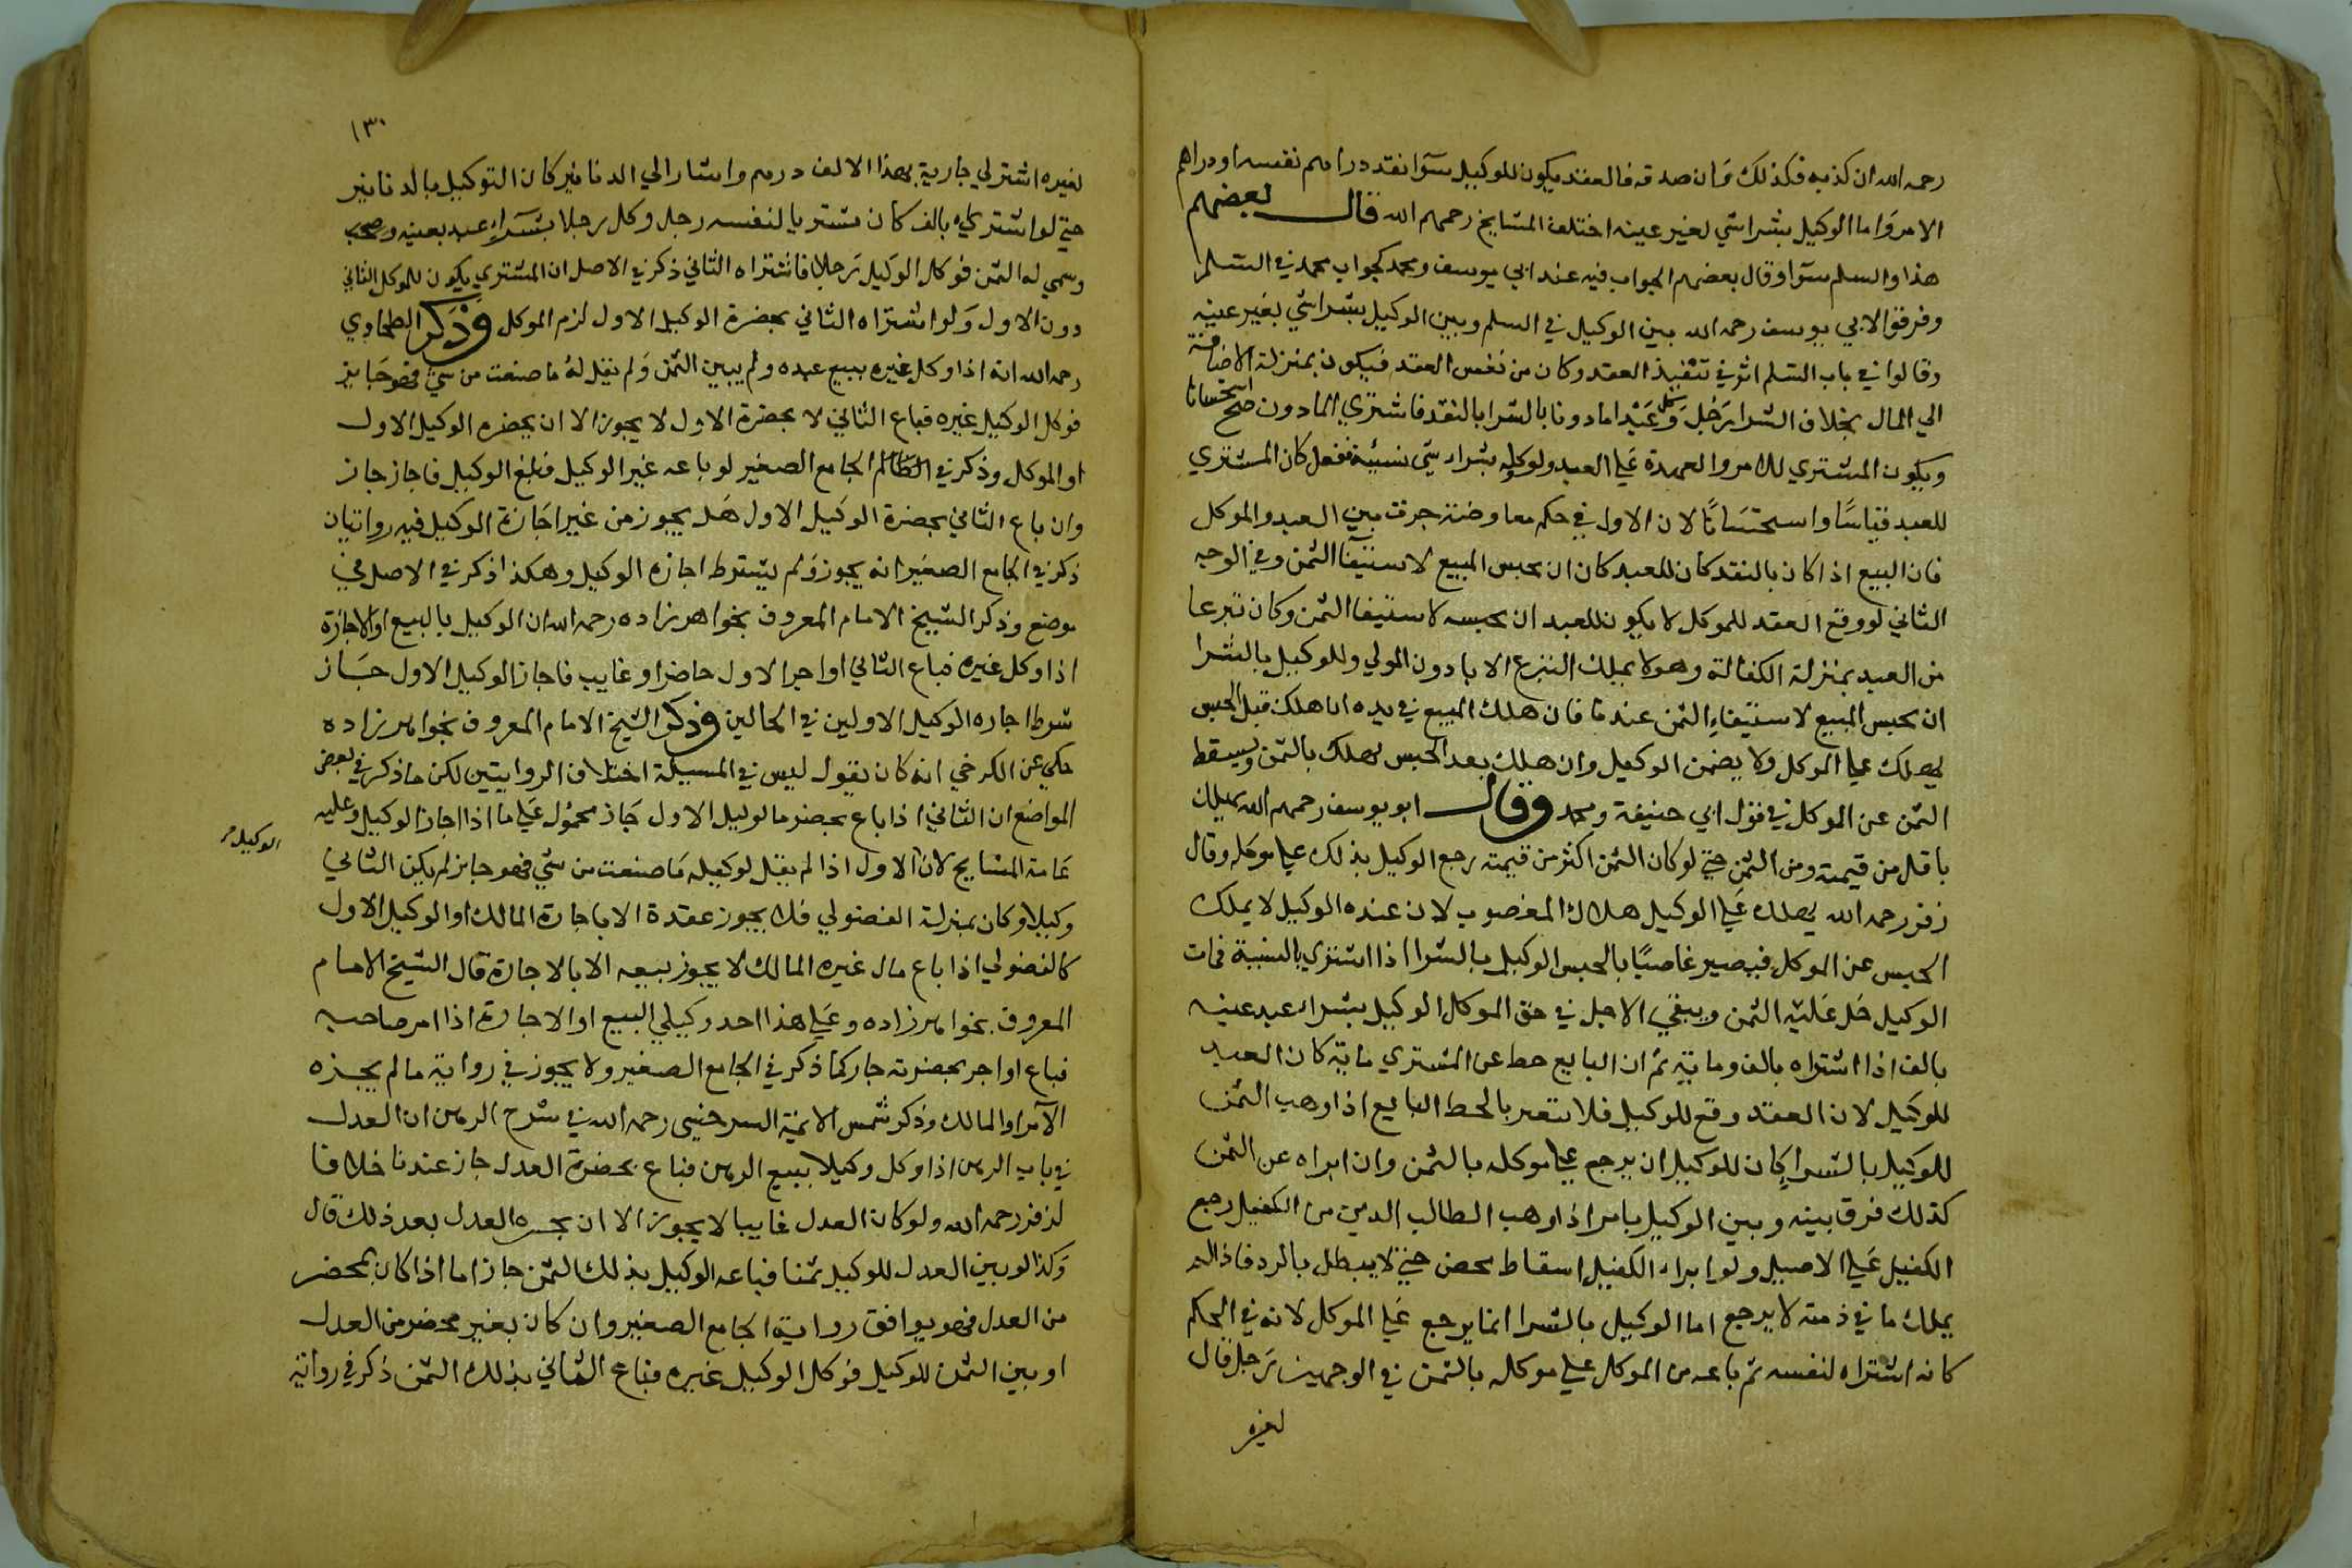 رحمه الله ان كذبه فكذلك وان صدقه فالعقد يكون للوكيل سوا نقد دراهم نفسه او دراهم
الامر واما الوكيل بشراشي لغير عينه اختلف المشايخ رحمهم الله قال بعضهم
هذا والسلم سوا وقال بعضهم الجواب فيه عند ابي يوسف ومحمد كجواب محمد في السلم
وفرقوا لابي يوسف رحمه الله بين الوكيل في السلم وبين الوكيل بشراشي بغير عينه
وقالوا في باب السلم اثر في تنفيذ العقد وكان من نفس العقد فيكون بمنزلة الاضافة
الي المال بخلاف الشرا رجل وكل عبدا ماذونا بالشرا بالنقد فاشتري الماذون صح استحسانا
ويكون المشتري للامر والعهدة علي العبد ولو وكله بشراء شي نسيئة ففعل كان المشتري
للعبد قياسا واستحسانا لان الاول في حكم معاوضة جرت بين العبد والموكل
فان البيع اذا كان بالنقد كان للعبد كان ان يحبس المبيع لاستيفا الثمن وفي الوجه
الثاني لو وقع العقد للموكل لا يكون للعبد ان يحبسه لاستيفا الثمن وكان تبرعا
من العبد بمنزلة الكفالة وهو لا يملك التبرع الا باذن المولي وللوكيل بالشرا
ان يحبس المبيع لاستيفاء الثمن عندنا فان هلك المبيع في يده ان هلك قبل الحبس
يهلك علي الموكل ولا يضمن الوكيل وان هلك بعد الحبس يهلك بالثمن ويسقط
الثمن عن الموكل في قول ابي حنيفة ومحمد وقال ابو يوسف رحمهم الله يهلك
باقل من قيمته ومن الثمن حتي لو كان الثمن اكثر من قيمته رجع الوكيل بذلك علي موكله وقال
زفر رحمه الله يهلك علي الوكيل هلاك المغصوب لان عنده الوكيل لا يملك
الحبس عن الموكل فيصير غاصبا بالحبس الوكيل بالشرا اذا اشتري بالنسية فمات
الوكيل حل عليه الثمن ويبقي الاجل في حق الموكل الوكيل بشراء عبد عينه
بالف اذا اشتراه بالف وماية ثم ان البايع حط عن المشتري ماية كان العبد
للوكيل لان العقد وقع للوكيل فلا يتغير بالحط البايع اذا وهب الثمن
للوكيل بالشراء كان للوكيل ان يرجع علي موكله بالثمن وان ابراه عن الثمن
كذلك فرق بينه وبين الوكيل بامر اذا وهب الطالب الدين من الكفيل رجع
الكفيل علي الاصيل ولو ابراء الكفيل اسقاط محض حتي لا يبطل بالرد فاذا لم
يملك ما في ذمته لا يرجع اما الوكيل بالشرا انما يرجع علي الموكل لانه في الحكم
كانه اشتراه لنفسه ثم باعه من الموكل علي موكله بالثمن في الوجهين رجل قال
لغيره
١٣٠
لغيره اشتر لي جارية بهذا الالف درهم واشار الي الدنانير كان التوكيل بالدنانير
حتي لو اشتري بالف كان مشتريا لنفسه رجل وكل رجلا بشراء عبد بعينه
وسمي له الثمن فوكل الوكيل رجلا فاشتراه الثاني ذكر في الاصل ان المشتري يكون للموكل الثاني
دون الاول ولو اشتراه الثاني بحضرة الوكيل الاول لزم الموكل وذكر الطحاوي
رحمه الله انه اذا وكل غيره ببيع عبده ولم يبين الثمن ولم يقل له ما صنعت من شي فهو جايز
فوكل الوكيل غيره فباع الثاني لا بحضرة الاول لا يجوز الا ان يحضره الوكيل الاول
او الموكل وذكر في الجامع الصغير لو باعه غير الوكيل فبلغ الوكيل فاجاز جاز
وان باع الثاني بحضرة الوكيل الاول هل يجوز من غير اجازة الوكيل فيه روايتان
ذكر في الجامع الصغير انه يجوز ولم يشترط اجازه الوكيل وهكذا ذكر في الاصل في
موضع وذكر الشيخ الامام المعروف بخواهرزاده رحمه الله ان الوكيل بالبيع او الاجازة
اذا وكل غيره فباع الثاني او اجر الاول حاضرا وغايب فاجاز الوكيل الاول جاز
شرط اجازه الوكيل الاولين في الحالين وذكر الشيخ الامام المعروف بخواهرزاده
حكي عن الكرخي انه كان يقول ليس في المسيلة اختلاف الروايتين لكن ما ذكر في بعض
المواضع ان الثاني اذا باع بحضر الاول جاز محمول علي ما اذا اجاز الوكيل وعليه
الوكيل
عامة المشايخ لان الاول اذا لم يقل لوكيله ما صنعت من شي فهو جايز لم يكن الثاني
وكيلا وكان بمنزلة الفضولي فلا يجوز عقدة الا باجازة المالك او الوكيل الاول
كالفضولي اذا باع مال غيره المالك لا يجوز بيعه الا بالاجازة قال الشيخ الامام
المعروف بخواهرزاده وعلي هذا احد وكيلي البيع او الاجارة اذا امر صاحبه
فباع او اجر بحضرته جاز كما ذكر في الجامع الصغير ولا يجوز في رواية ما لم يجزه
الآمر او المالك وذكر شمس الائمة السرخسي رحمه الله في شرح الرهن ان العدل
في باب الرهن اذا وكل وكيلا ببيع الرهن فباع بحضرة العدل جاز عندنا خلافا
لزفر رحمه الله ولو كان العدل غايبا لا يجوز الا ان يجيزه العدل بعد ذلك قال
وكذا لو بين العدل للوكيل ثمنا فباعه الوكيل بذلك الثمن جاز اما اذا كان بمحضر
من العدل فهو يوافق رواية الجامع الصغير وان كان بغير محضر من العدل
او بين الثمن للوكيل فوكل الوكيل غيره فباع الثاني بذلك الثمن ذكر في رواية